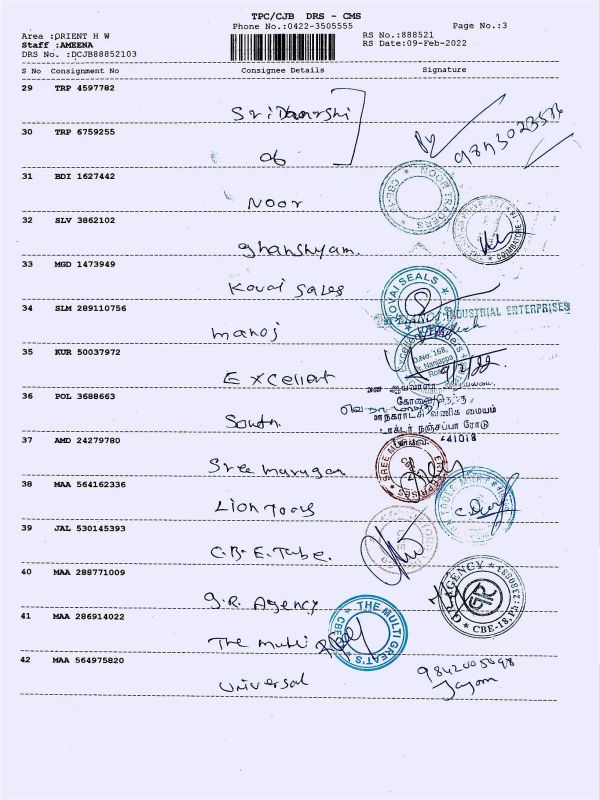 TPC/CJB DRS - CMS
Phone No.:0422-3505555
Page No.:3
Area :ORIENT H W
RS No.:888521
Staff :AMEENA
RS Date:09-Feb-2022
DRS No. :DCJB88852103
S No Consignment No Consignee Details Signature
29 TRP 4597782
Sri Dharshi
30 TRP 6759255
31 BDI 1627442
NOOR TRADERS
Noor
32 SLV 3862102
COIMBATORE
ghanshyam.
33 MGD 1473949
KOVAI SEALS
Kovai Sales
34 SLM 289110756
INDUSTRIAL ENTERPRISES
manoj
35 KUR 50037972
D.No. 168,
Nanjappa
Road
9/2/22.
Excellent
36 POL 3688663
மாநகராட்சி வணிக மையம்
டாக்டர் நஞ்சப்பா ரோடு
South
37 AMD 24279780
641018
SREE
ENTERPRISES
Sree murugan
38 MAA 564162336
Lion Tools
39 JAL 530145393
C.B.E. Tube.
40 MAA 288771009
G.R. AGENCY
CBE-18.
g.R. Agency
41 MAA 286914022
THE MULTI GREAT'S
CBE
The multi
42 MAA 564975820
universal